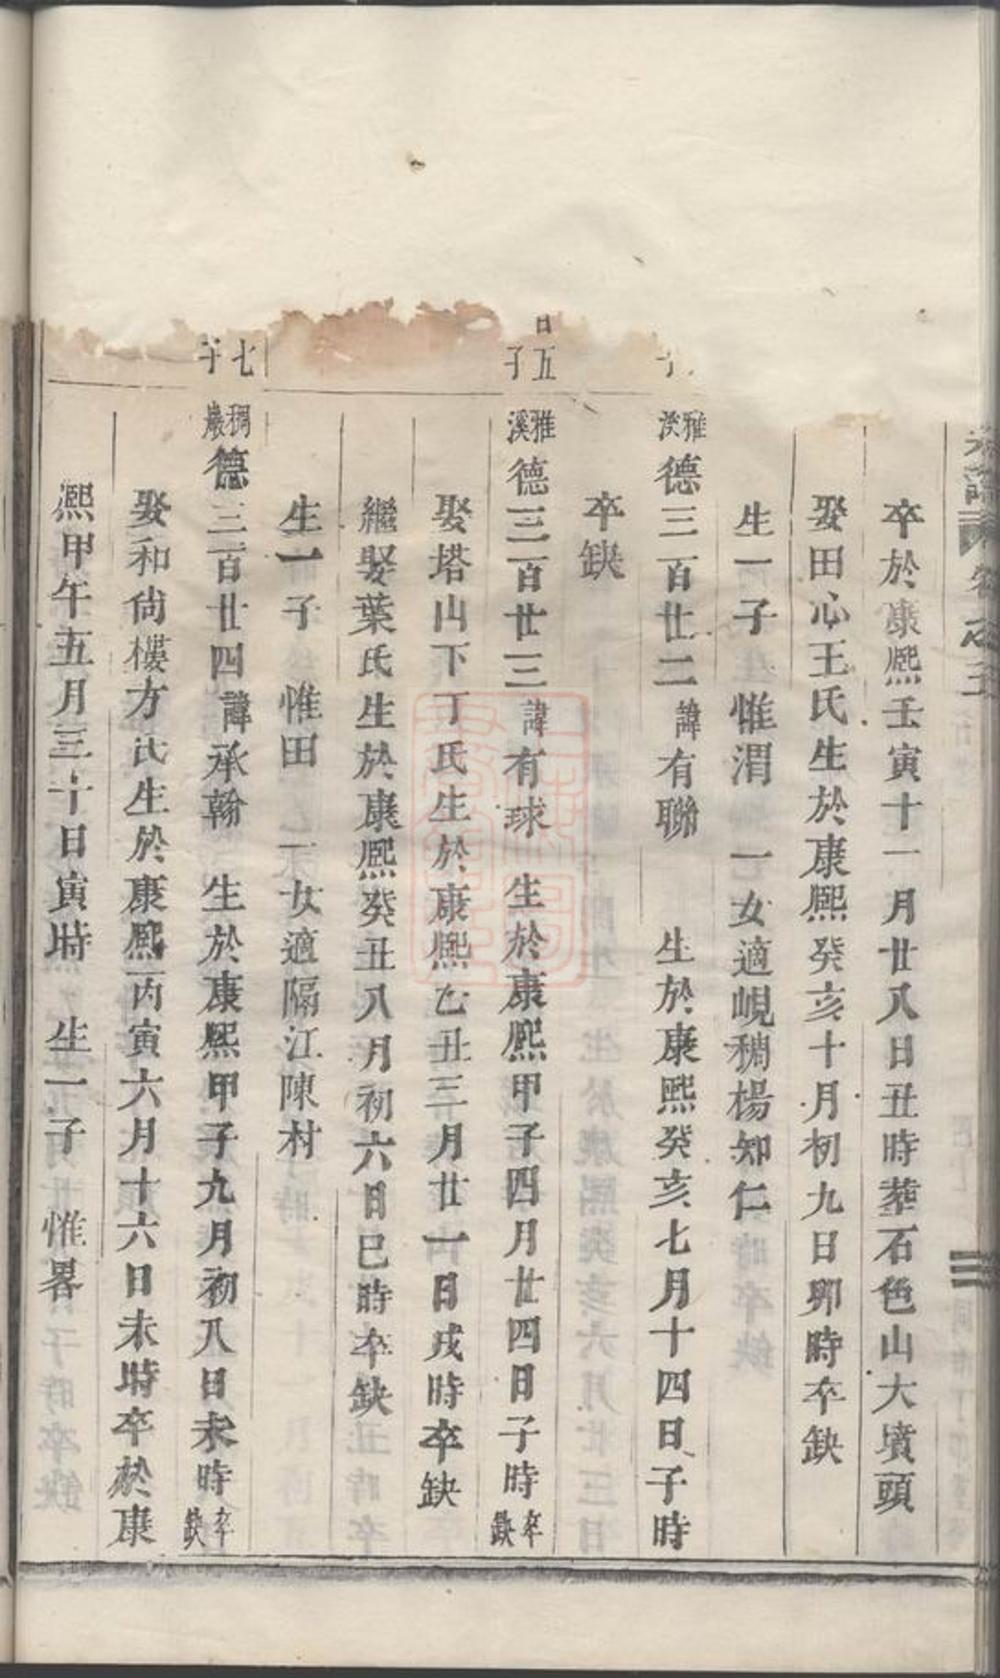 卒於康熙壬寅十一月廿八日丑時葬石色山大墳頭
娶田心王氏生於康熙癸亥十月初九日卯時卒缺
生一子 惟渭 一女適峴稠楊知仁
雅溪德三百廿二諱有聯 生於康熙癸亥七月十四日子時
卒缺
五子
雅溪德三百廿三諱有球 生於康熙甲子四月廿四日子時卒缺
娶塔山下丁氏生於康熙乙丑三月廿一日戌時卒缺
繼娶葉氏生於康熙癸丑八月初六日巳時卒缺
生一子 惟田 一女適隔江陳村
七子
稠巖德三百廿四諱承翰 生於康熙甲子九月初八日未時卒缺
娶和尚樓方氏生於康熙丙寅六月十六日未時卒於康
熙甲午五月三十日寅時 生一子 惟畧